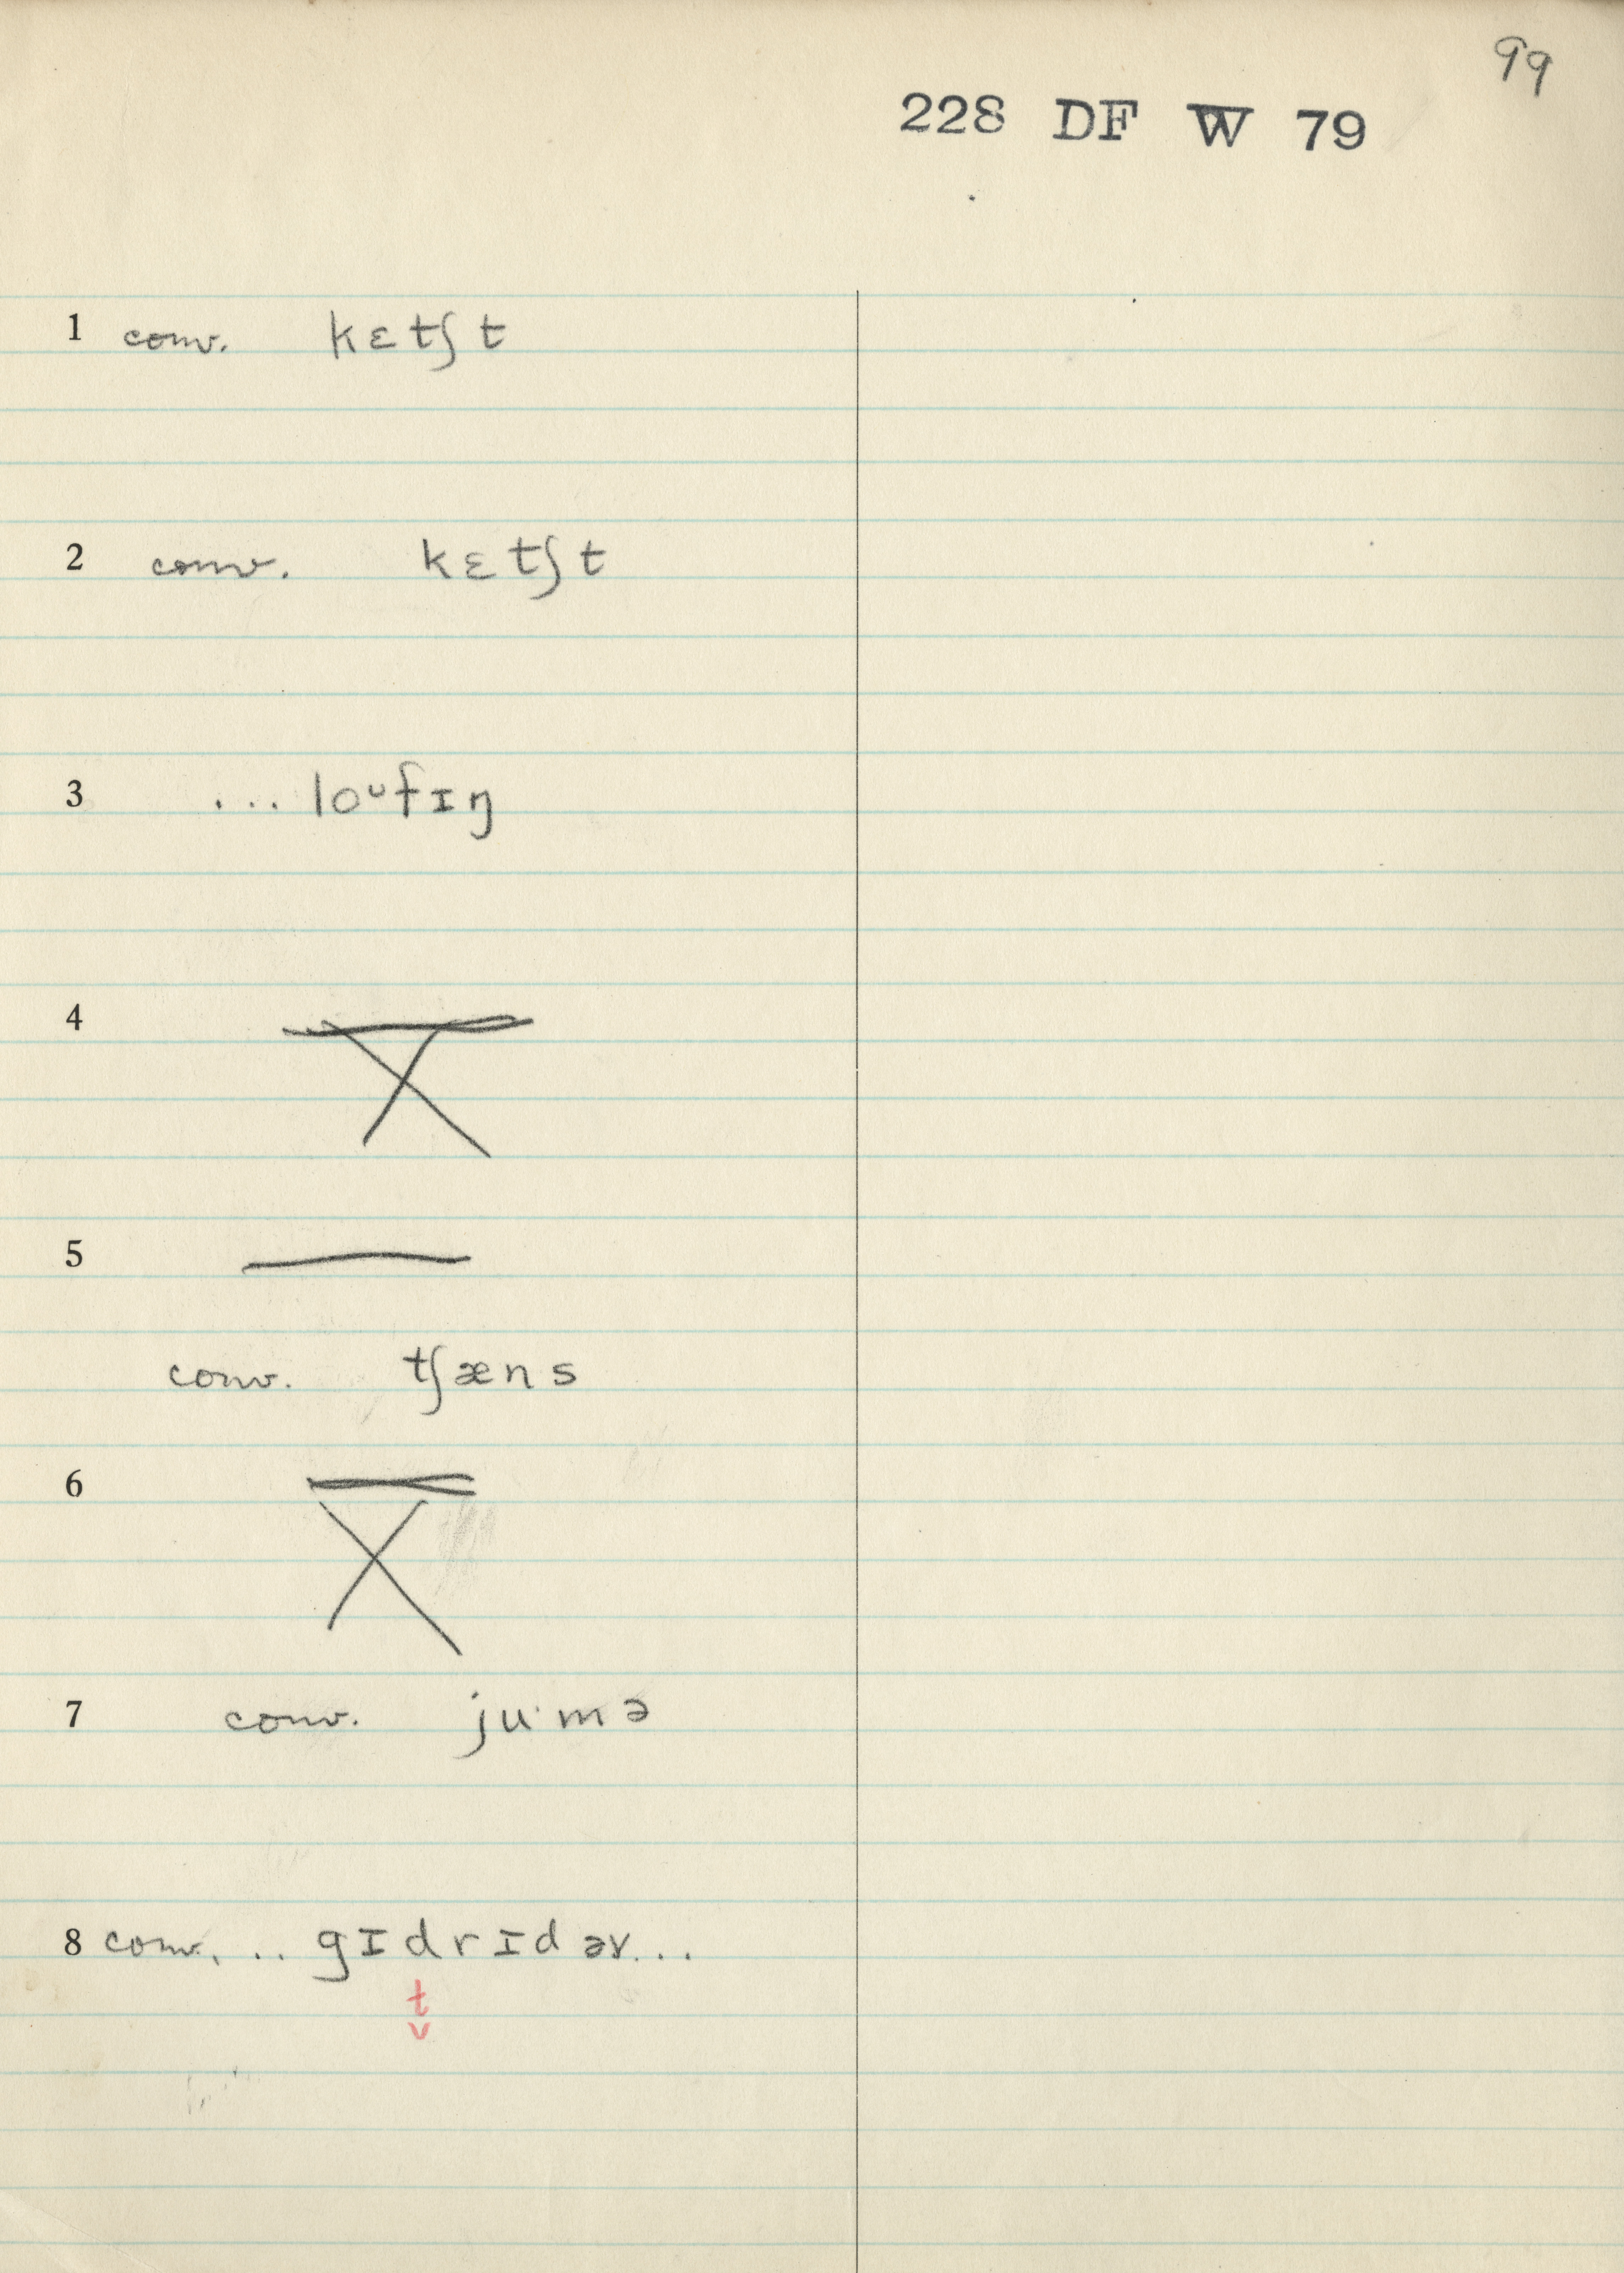 99
228 DF W 79
1 conv. kɛtʃt
2 conv. kɛtʃt
3 ... loᵘfɪŋ
4
5
conv. tʃæns
6
7 conv. ju·mə
8 conv. ... gɪdrɪdəv...
t̬